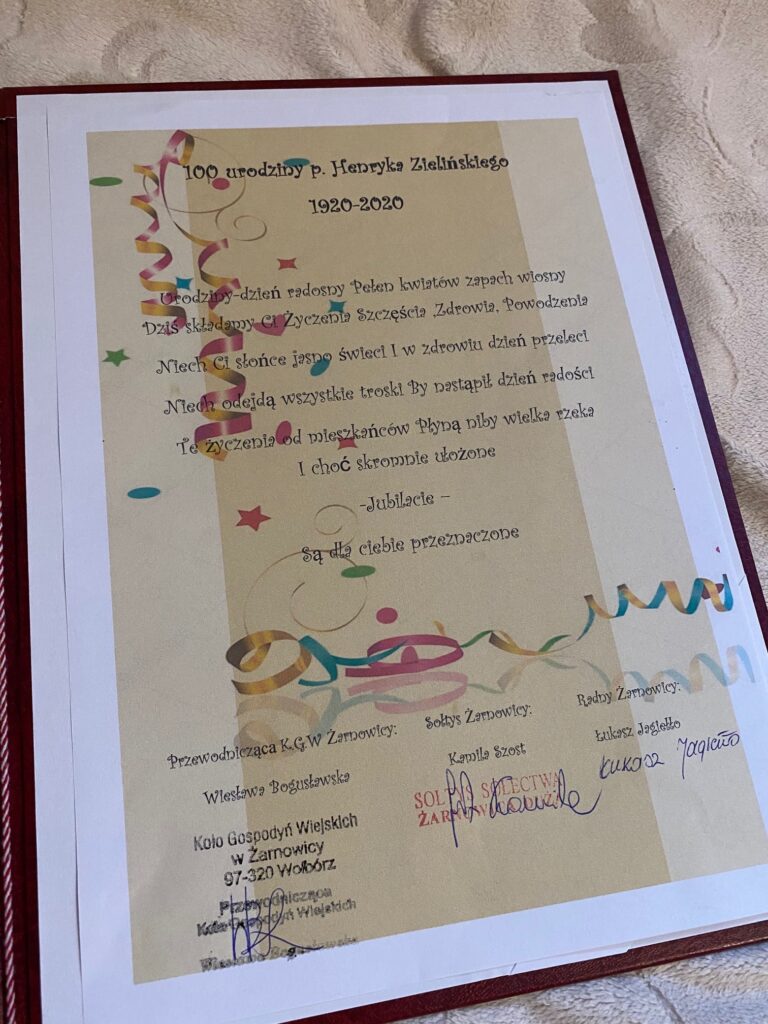 100 urodziny p. Henryka Zielińskiego
1920-2020
Urodziny-dzień radosny Pełen kwiatów zapach wiosny
Dziś składamy Ci Życzenia Szczęścia ,Zdrowia, Powodzenia
Niech Ci słońce jasno świeci I w zdrowiu dzień przeleci
Niech odejdą wszystkie troski By nastąpił dzień radości
Te życzenia od mieszkańców Płyną niby wielka rzeka
I choć skromnie ułożone
-Jubilacie –
Są dla ciebie przeznaczone
Przewodnicząca K.G.W Żarnowicy:
Wiesława Bogusławska
Koło Gospodyń Wiejskich
w Żarnowicy
97-320 Wolbórz
Przewodnicząca
Koła Gospodyń Wiejskich
Wiesława Bogusławska
Sołtys Żarnowicy:
Kamila Szost
SOŁTYS SOŁECTWA
Kamila
Radny Żarnowicy:
Łukasz Jagiełło
Łukasz Jagiełło